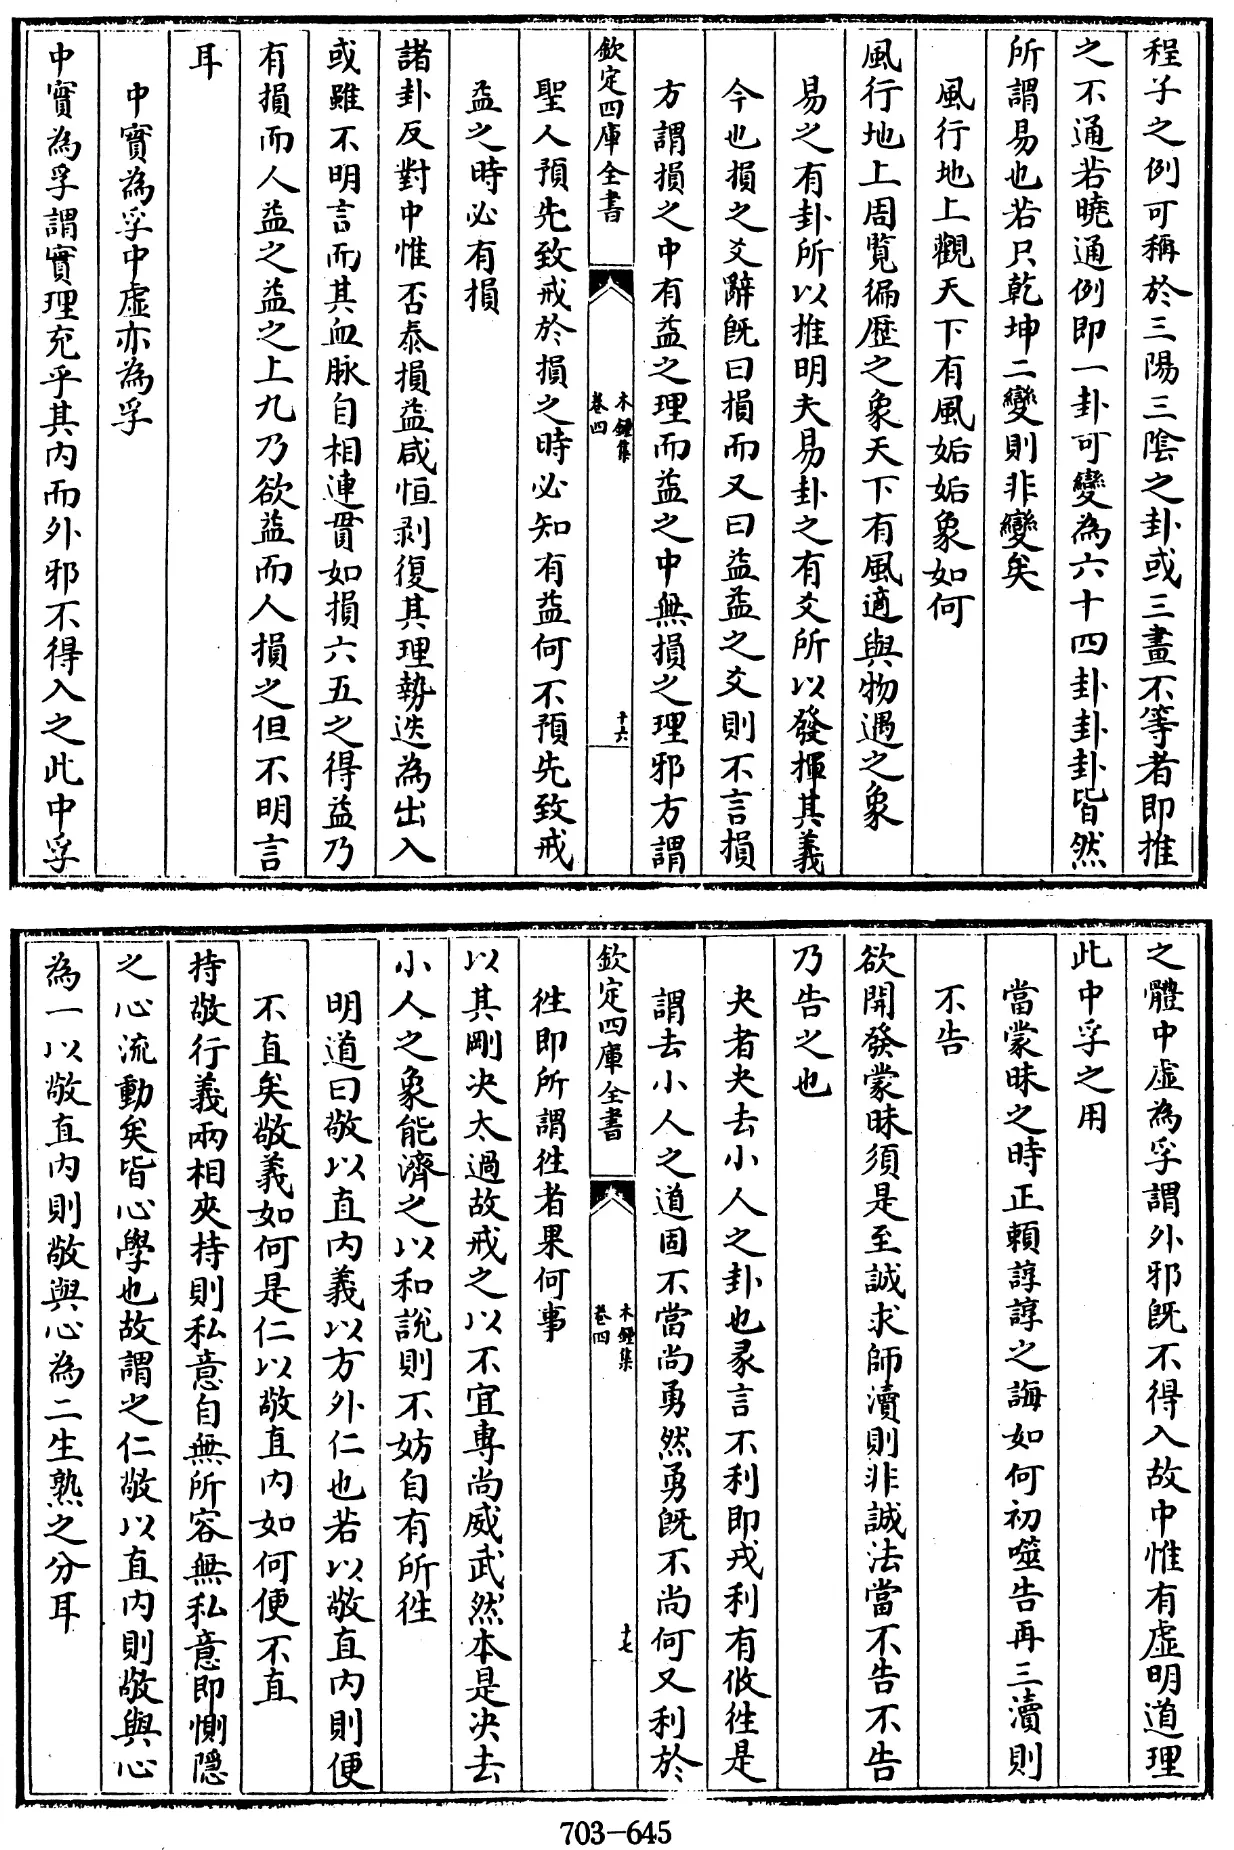 程子之例可稱於三陽三陰之卦或三畫不等者即推
之不通若曉通例即一卦可變為六十四卦卦卦皆然
所謂易也若只乾坤二變則非變矣
風行地上觀天下有風姤姤象如何
風行地上周覽徧歷之象天下有風適與物遇之象
易之有卦所以推明夫易卦之有爻所以發揮其義
今也損之爻辭既曰損而又曰益益之爻則不言損
方謂損之中有益之理而益之中無損之理邪方謂
欽定四庫全書
木鍾集
卷四
十六
聖人預先致戒於損之時必知有益何不預先致戒
益之時必有損
諸卦反對中惟否泰損益咸恒剥復其理勢迭為出入
或雖不明言而其血脉自相連貫如損六五之得益乃
有損而人益之益之上九乃欲益而人損之但不明言
耳
中實為孚中虛亦為孚
中實為孚謂實理充乎其内而外邪不得入之此中孚
之體中虛為孚謂外邪既不得入故中惟有虛明道理
此中孚之用
當蒙昧之時正賴諄諄之誨如何初噬告再三瀆則
不告
欲開發蒙昧須是至誠求師瀆則非誠法當不告不告
乃告之也
夬者夬去小人之卦也彖言不利即戎利有攸往是
謂去小人之道固不當尚勇然勇既不尚何又利於
欽定四庫全書
木鍾集
卷四
十七
徃即所謂徃者果何事
以其剛决太過故戒之以不宜專尚威武然本是决去
小人之象能濟之以和說則不妨自有所徃
明道曰敬以直内義以方外仁也若以敬直内則便
不直矣敬義如何是仁以敬直内如何便不直
持敬行義兩相夾持則私意自無所容無私意即惻隠
之心流動矣皆心學也故謂之仁敬以直内則敬與心
為一以敬直内則敬與心為二生熟之分耳
703-645